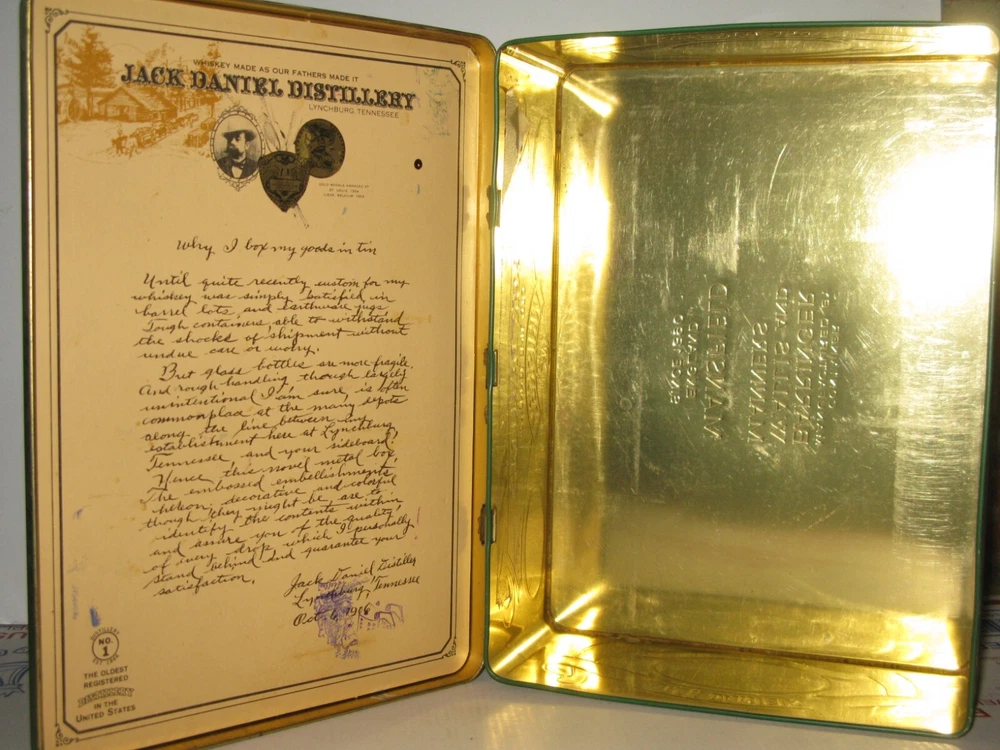 WHISKEY MADE AS OUR FATHERS MADE IT
JACK DANIEL DISTILLERY
LYNCHBURG TENNESSEE
GOLD MEDALS AWARDED AT
ST. LOUIS 1904
LIEGE BELGIUM 1905
Why I box my goods in tin
Until quite recently custom for my
whiskey was simply satisfied in
barrel lots, and earthware jugs
Tough containers able to withstand
the shocks of shipment without
undue care or worry.
But glass bottles are more fragile.
And rough handling, though largely
unintentional I am sure, is often
commonplace at the many depots
along the line between my
establishment here at Lynchburg
Tennessee, and your sideboard.
Hence this novel metal box,
The embossed embellishments
hereon, decorative and colorful
though they might be, are to
identify the contents within
and assure you of the quality
of every drop which I personally
stand behind and guarantee your
satisfaction.
Jack Daniel Distiller
Lynchburg, Tennessee
Oct. 6, 1906
DISTILLERY
NO.
1
THE OLDEST
REGISTERED
DISTILLERY
IN THE
UNITED STATES
BARRINGER
WALLIS AND
MANNERS
MANSFIELD
ENGLAND